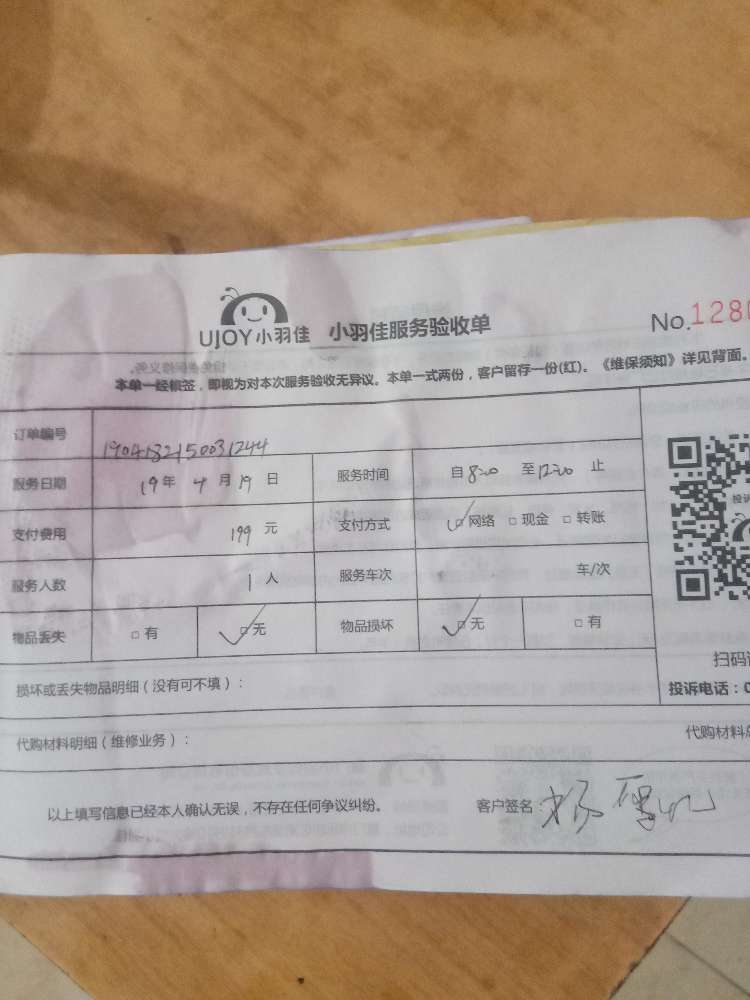 UJOY小羽佳 小羽佳服务验收单 No.1280
本单一经椒签，即视为对本次服务验收无异议。本单一式两份，客户留存一份(红)。《维保须知》详见背面。
订单编号 1904182150031244
服务日期 19年 4月 19日 服务时间 自8:00 至12:00 止
支付费用 199元 支付方式 ☑网络 □现金 □转账
服务人数 1人 服务车次 车/次
物品丢失 □有 ☑无 物品损坏 ☑无 □有
损坏或丢失物品明细（没有可不填）：
扫码
投诉电话：0
代购材料明细（维修业务）： 代购材料
以上填写信息已经本人确认无误，不存在任何争议纠纷。 客户签名：杨